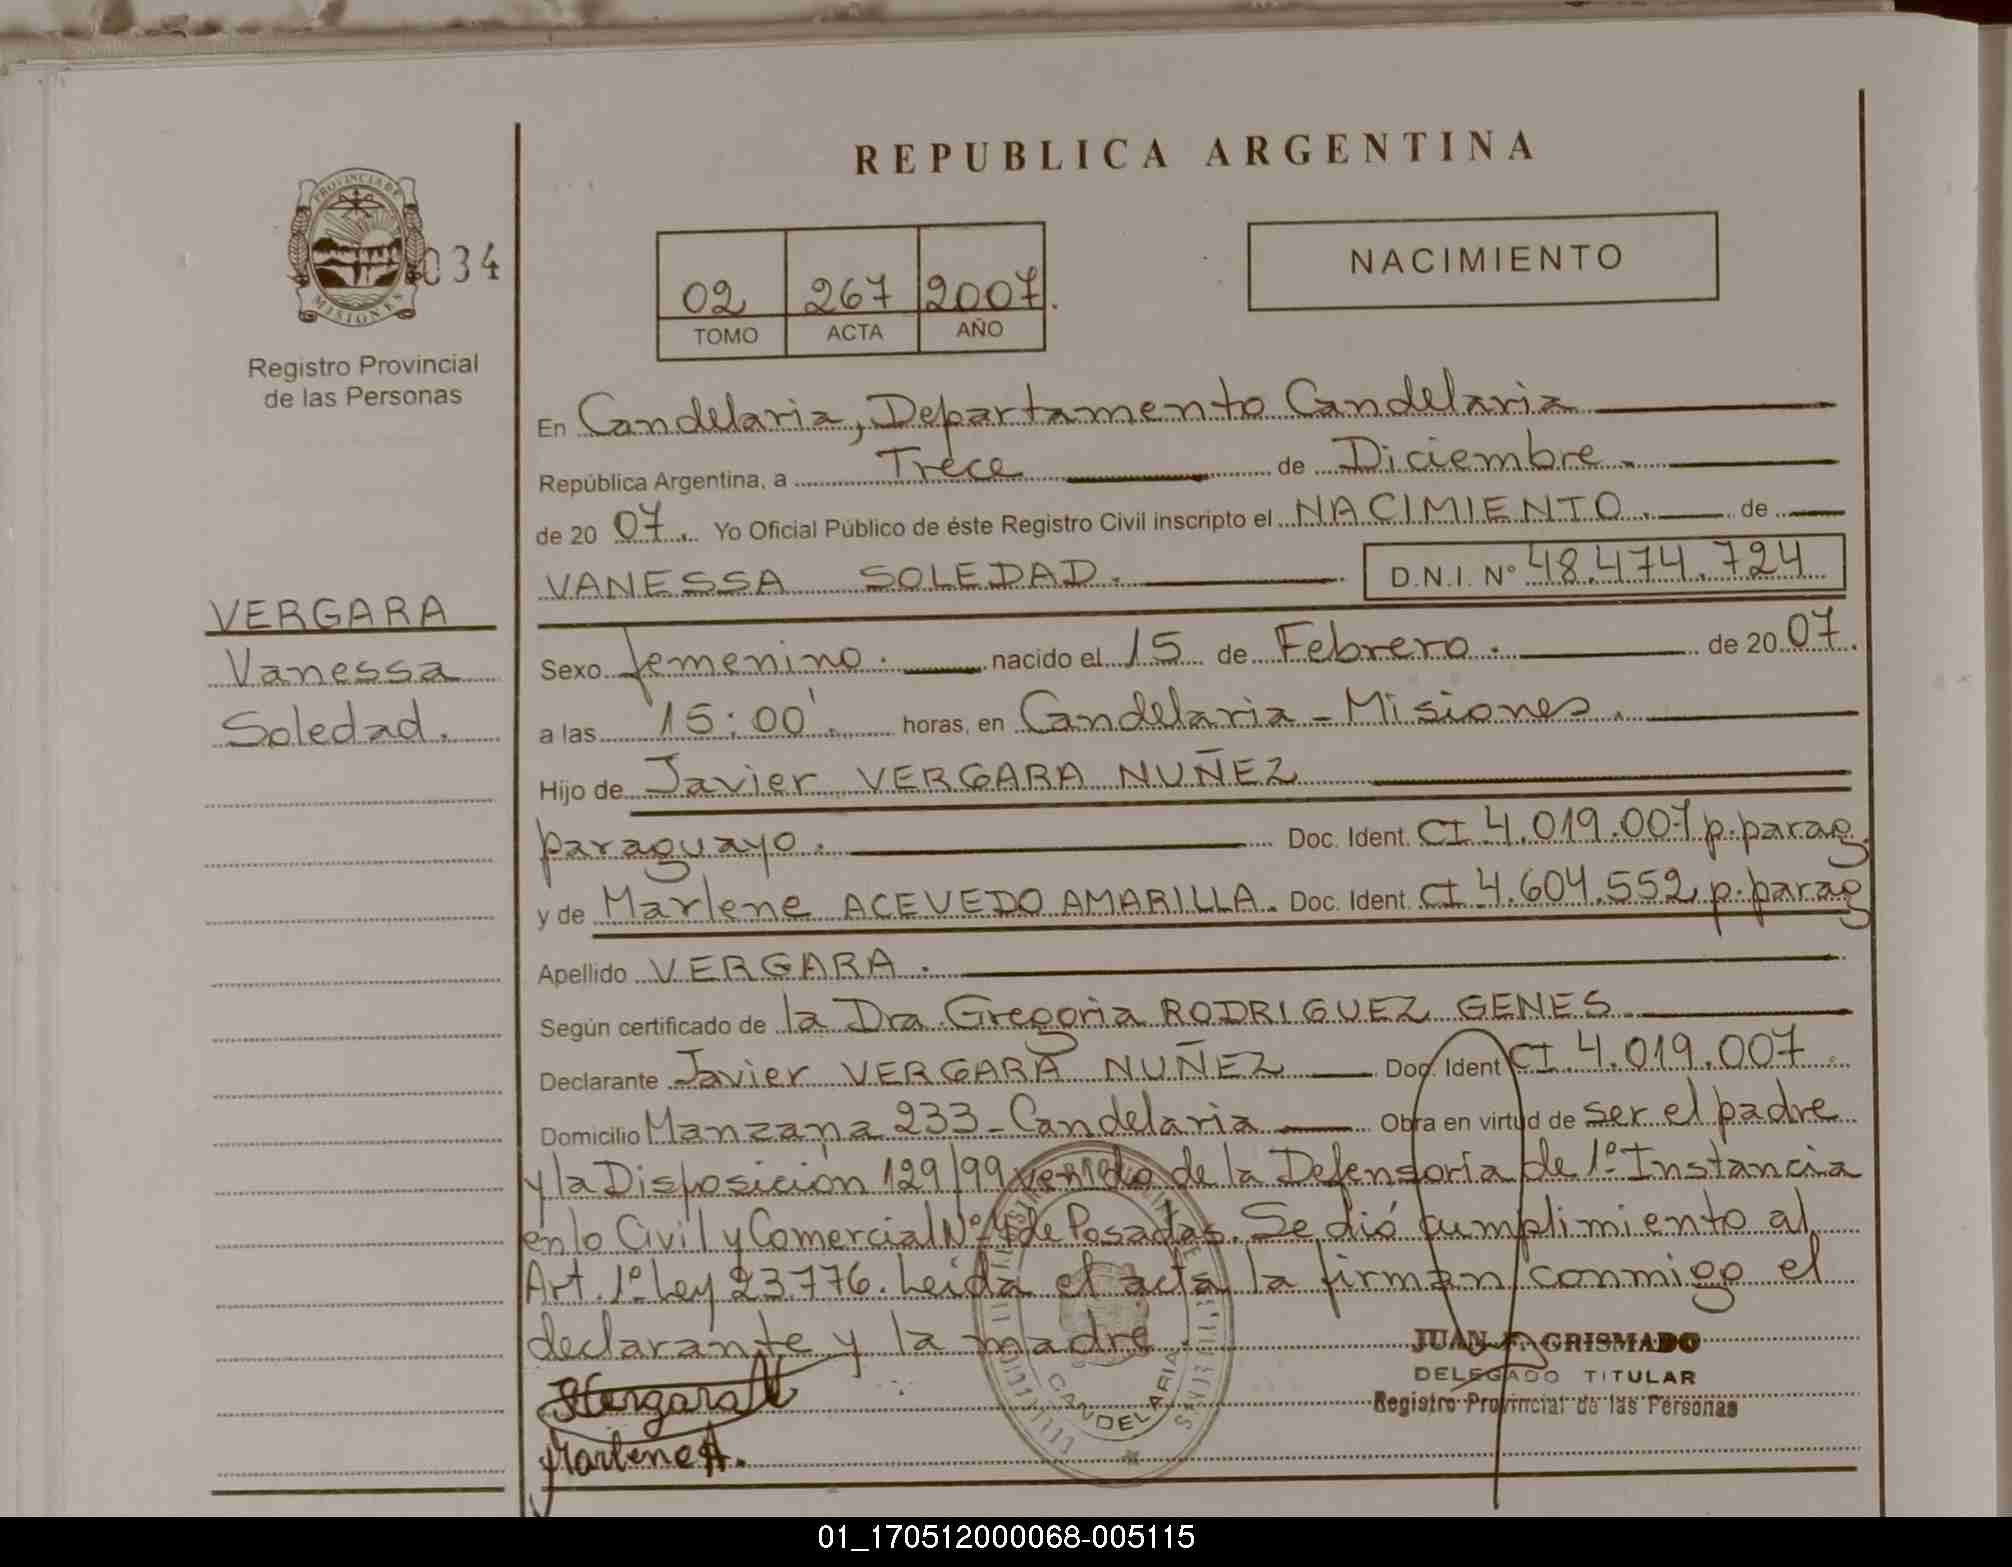 REPUBLICA ARGENTINA
PROVINCIA DE
MISIONES
034
Registro Provincial
de las Personas
02 267 2007.
TOMO ACTA AÑO
NACIMIENTO
En Candelaria, Departamento Candelaria
República Argentina, a Trece de Diciembre.
de 20 07. Yo Oficial Público de éste Registro Civil inscripto el NACIMIENTO. de
VANESSA SOLEDAD. D.N.I. Nº 48.474.724
VERGARA
Vanessa
Soledad.
Sexo femenino. nacido el 15 de Febrero. de 20 07.
a las 15:00'. horas, en Candelaria - Misiones.
Hijo de Javier VERGARA NUÑEZ
paraguayo. Doc. Ident. CI 4.019.007 p.parag.
y de Marlene ACEVEDO AMARILLA. Doc. Ident. CI 4.604.552 p.parag
Apellido VERGARA.
Según certificado de la Dra. Gregoria RODRIGUEZ GENES
Declarante Javier VERGARA NUÑEZ Doc. Ident CI 4.019.007.
Domicilio Manzana 233 - Candelaria Obra en virtud de ser el padre
y la Disposición 129/99 venido de la Defensoría de 1º Instancia
en lo Civil y Comercial Nº 4 de Posadas. Se dió cumplimiento al
Art. 1º Ley 23.776. Leida el acta la firman conmigo el
declarante y la madre.
JUAN F. GRISMADO
DELEGADO TITULAR
Registro Provincial de las Personas
CANDELARIA
Marlene A.
01_170512000068-005115